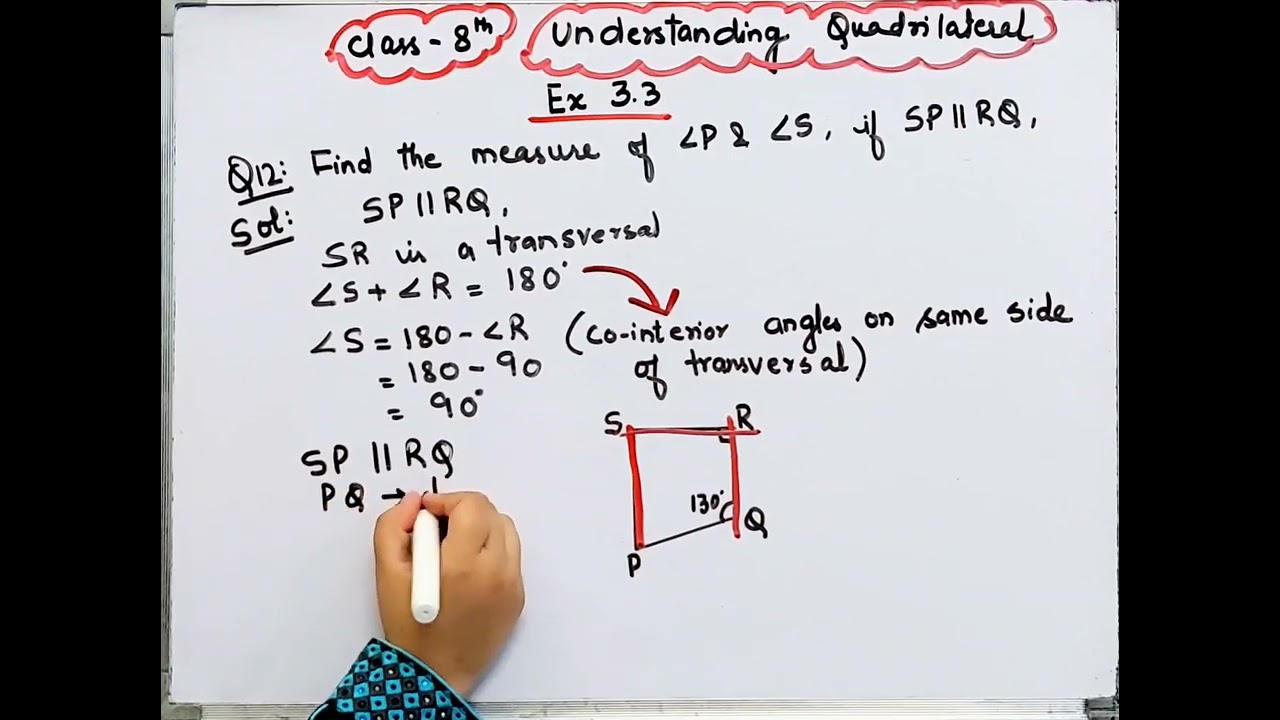 Class - 8th Understanding Quadrilateral
Ex 3.3
Q12: Find the measure of ∠P & ∠S, if SP || RQ,
Sol: SP || RQ,
SR is a transversal
∠S + ∠R = 180°
∠S = 180 - ∠R (co-interior angles on same side
= 180 - 90 of transversal)
= 90°
SP || RQ
PQ →
S R
130°
Q
P